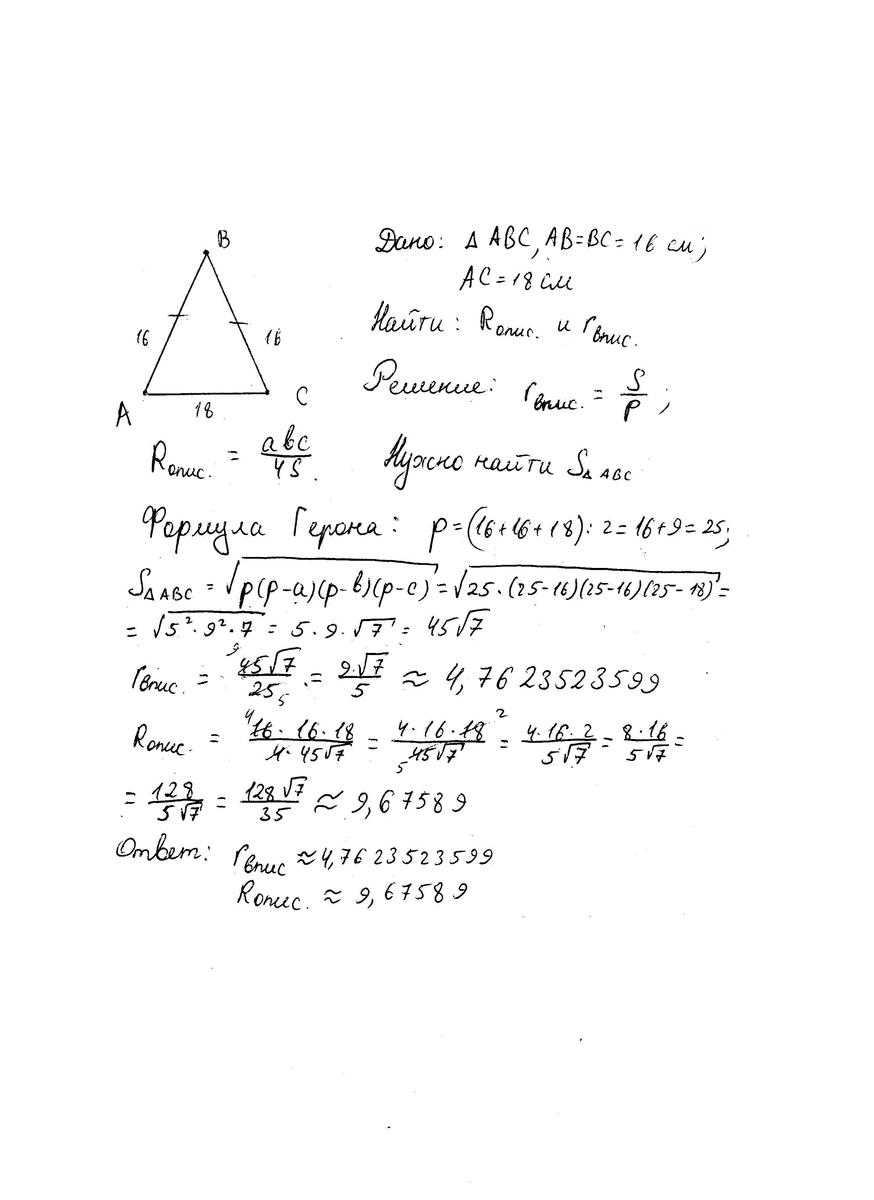 B
Дано: Δ ABC, AB=BC=16 см;
AC=18 см
16 16
Найти: Rопис. и rвпис.
A 18 C
Решение: rвпис. = S/p ;
Rопис. = abc/4S. Нужно найти SΔABC
Формула Герона: p=(16+16+18):2=16+9=25;
SΔABC = √p(p-a)(p-b)(p-c) = √25·(25-16)(25-16)(25-18) =
= √5²·9²·7 = 5·9·√7 = 45√7
rвпис. = 45√7/25 = 9√7/5 ≈ 4,7623523599
Rопис. = 16·16·18/4·45√7 = 4·16·18/45√7 = 4·16·2/5√7 = 8·16/5√7 =
= 128/5√7 = 128√7/35 ≈ 9,67589
Ответ: rвпис ≈ 4,7623523599
Rопис. ≈ 9,67589